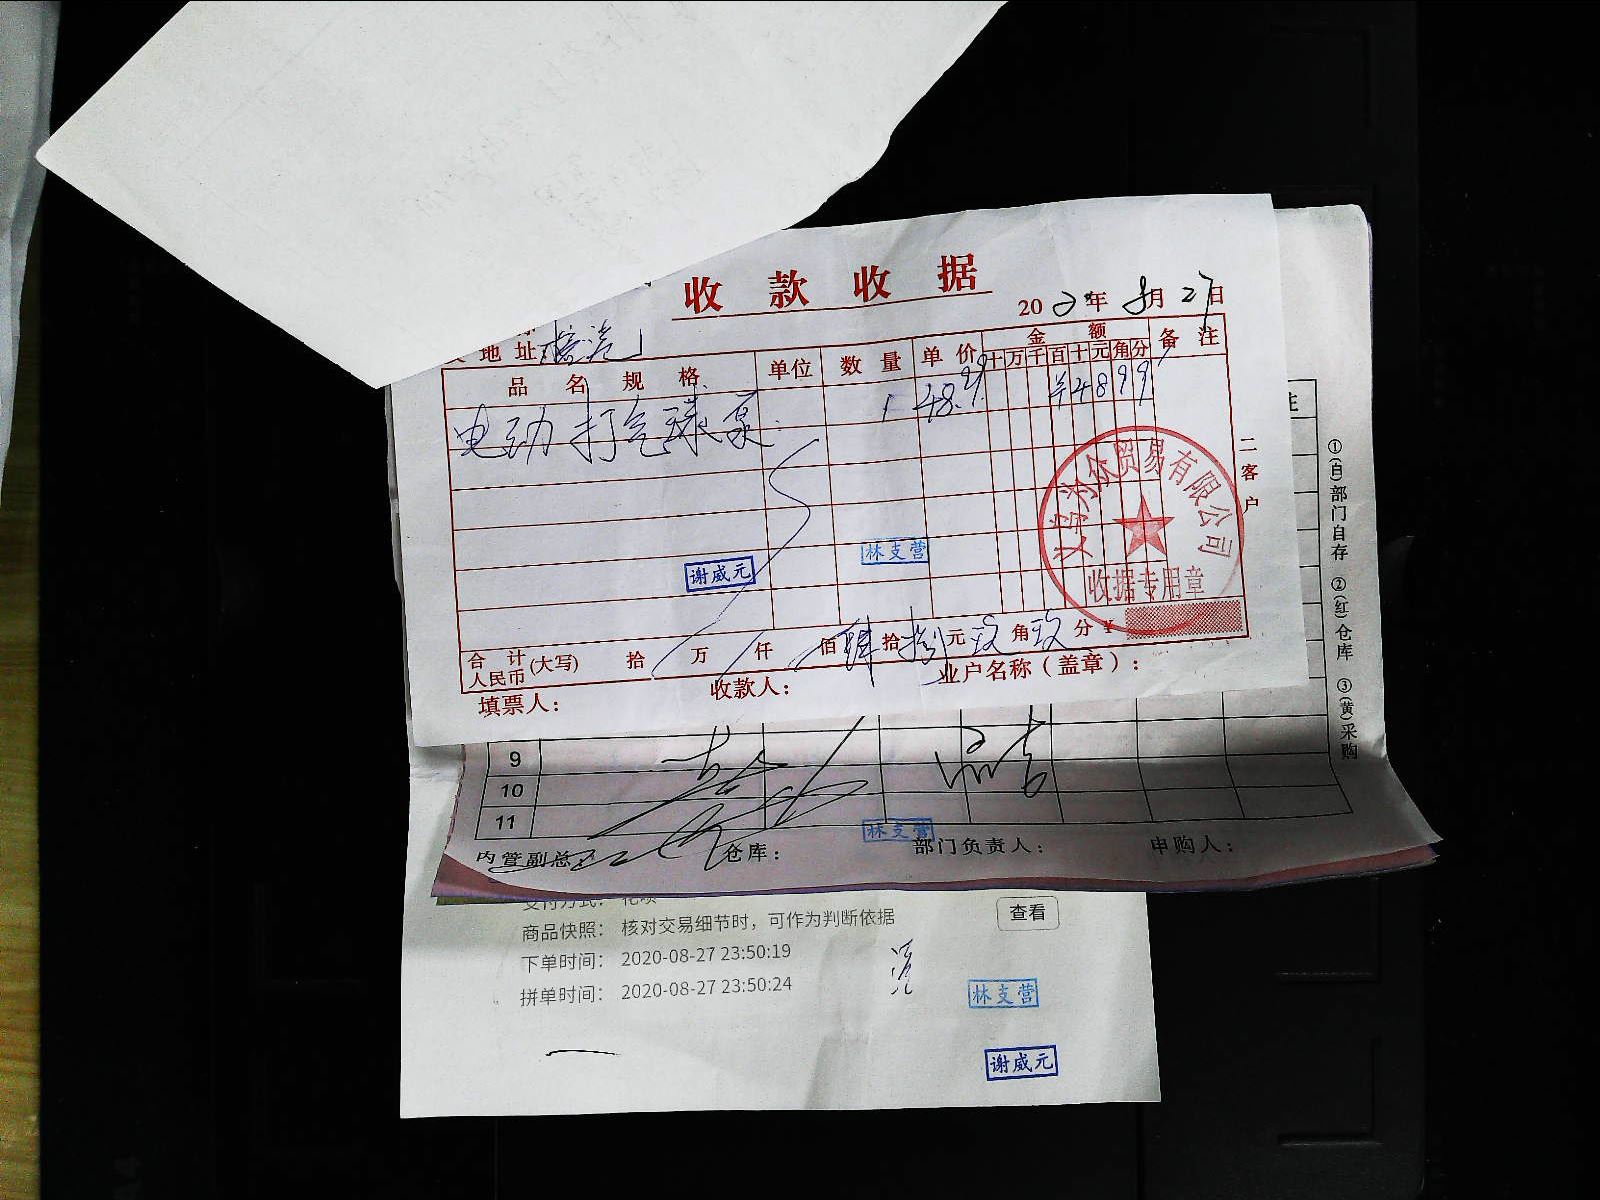 收款收据
2020年8月27日
地址
品名规格 单位 数量 单价 金额 备注
十万千百十元角分
电动打气球泵 1 48.99 ¥4899
二客户
义乌为众贸易有限公司
收据专用章
林支营
谢威元
合计人民币(大写) 拾 万 仟 佰 肆拾捌元玖角玖分 ¥
填票人: 收款人: 业户名称(盖章):
注
①(白)部门自存 ②(红)仓库 ③(黄)采购
9
10
11
林支营
内管副总: 仓库: 部门负责人: 申购人:
支付方式: 花呗
商品快照: 核对交易细节时,可作为判断依据 查看
下单时间: 2020-08-27 23:50:19
拼单时间: 2020-08-27 23:50:24
林支营
谢威元